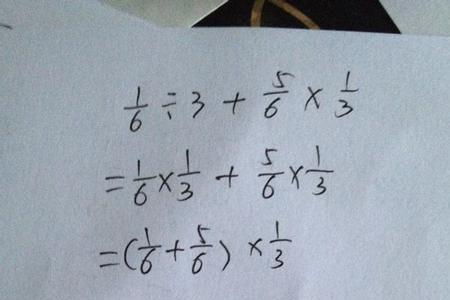 1/6 ÷ 3 + 5/6 × 1/3
= 1/6 × 1/3 + 5/6 × 1/3
= (1/6 + 5/6) × 1/3